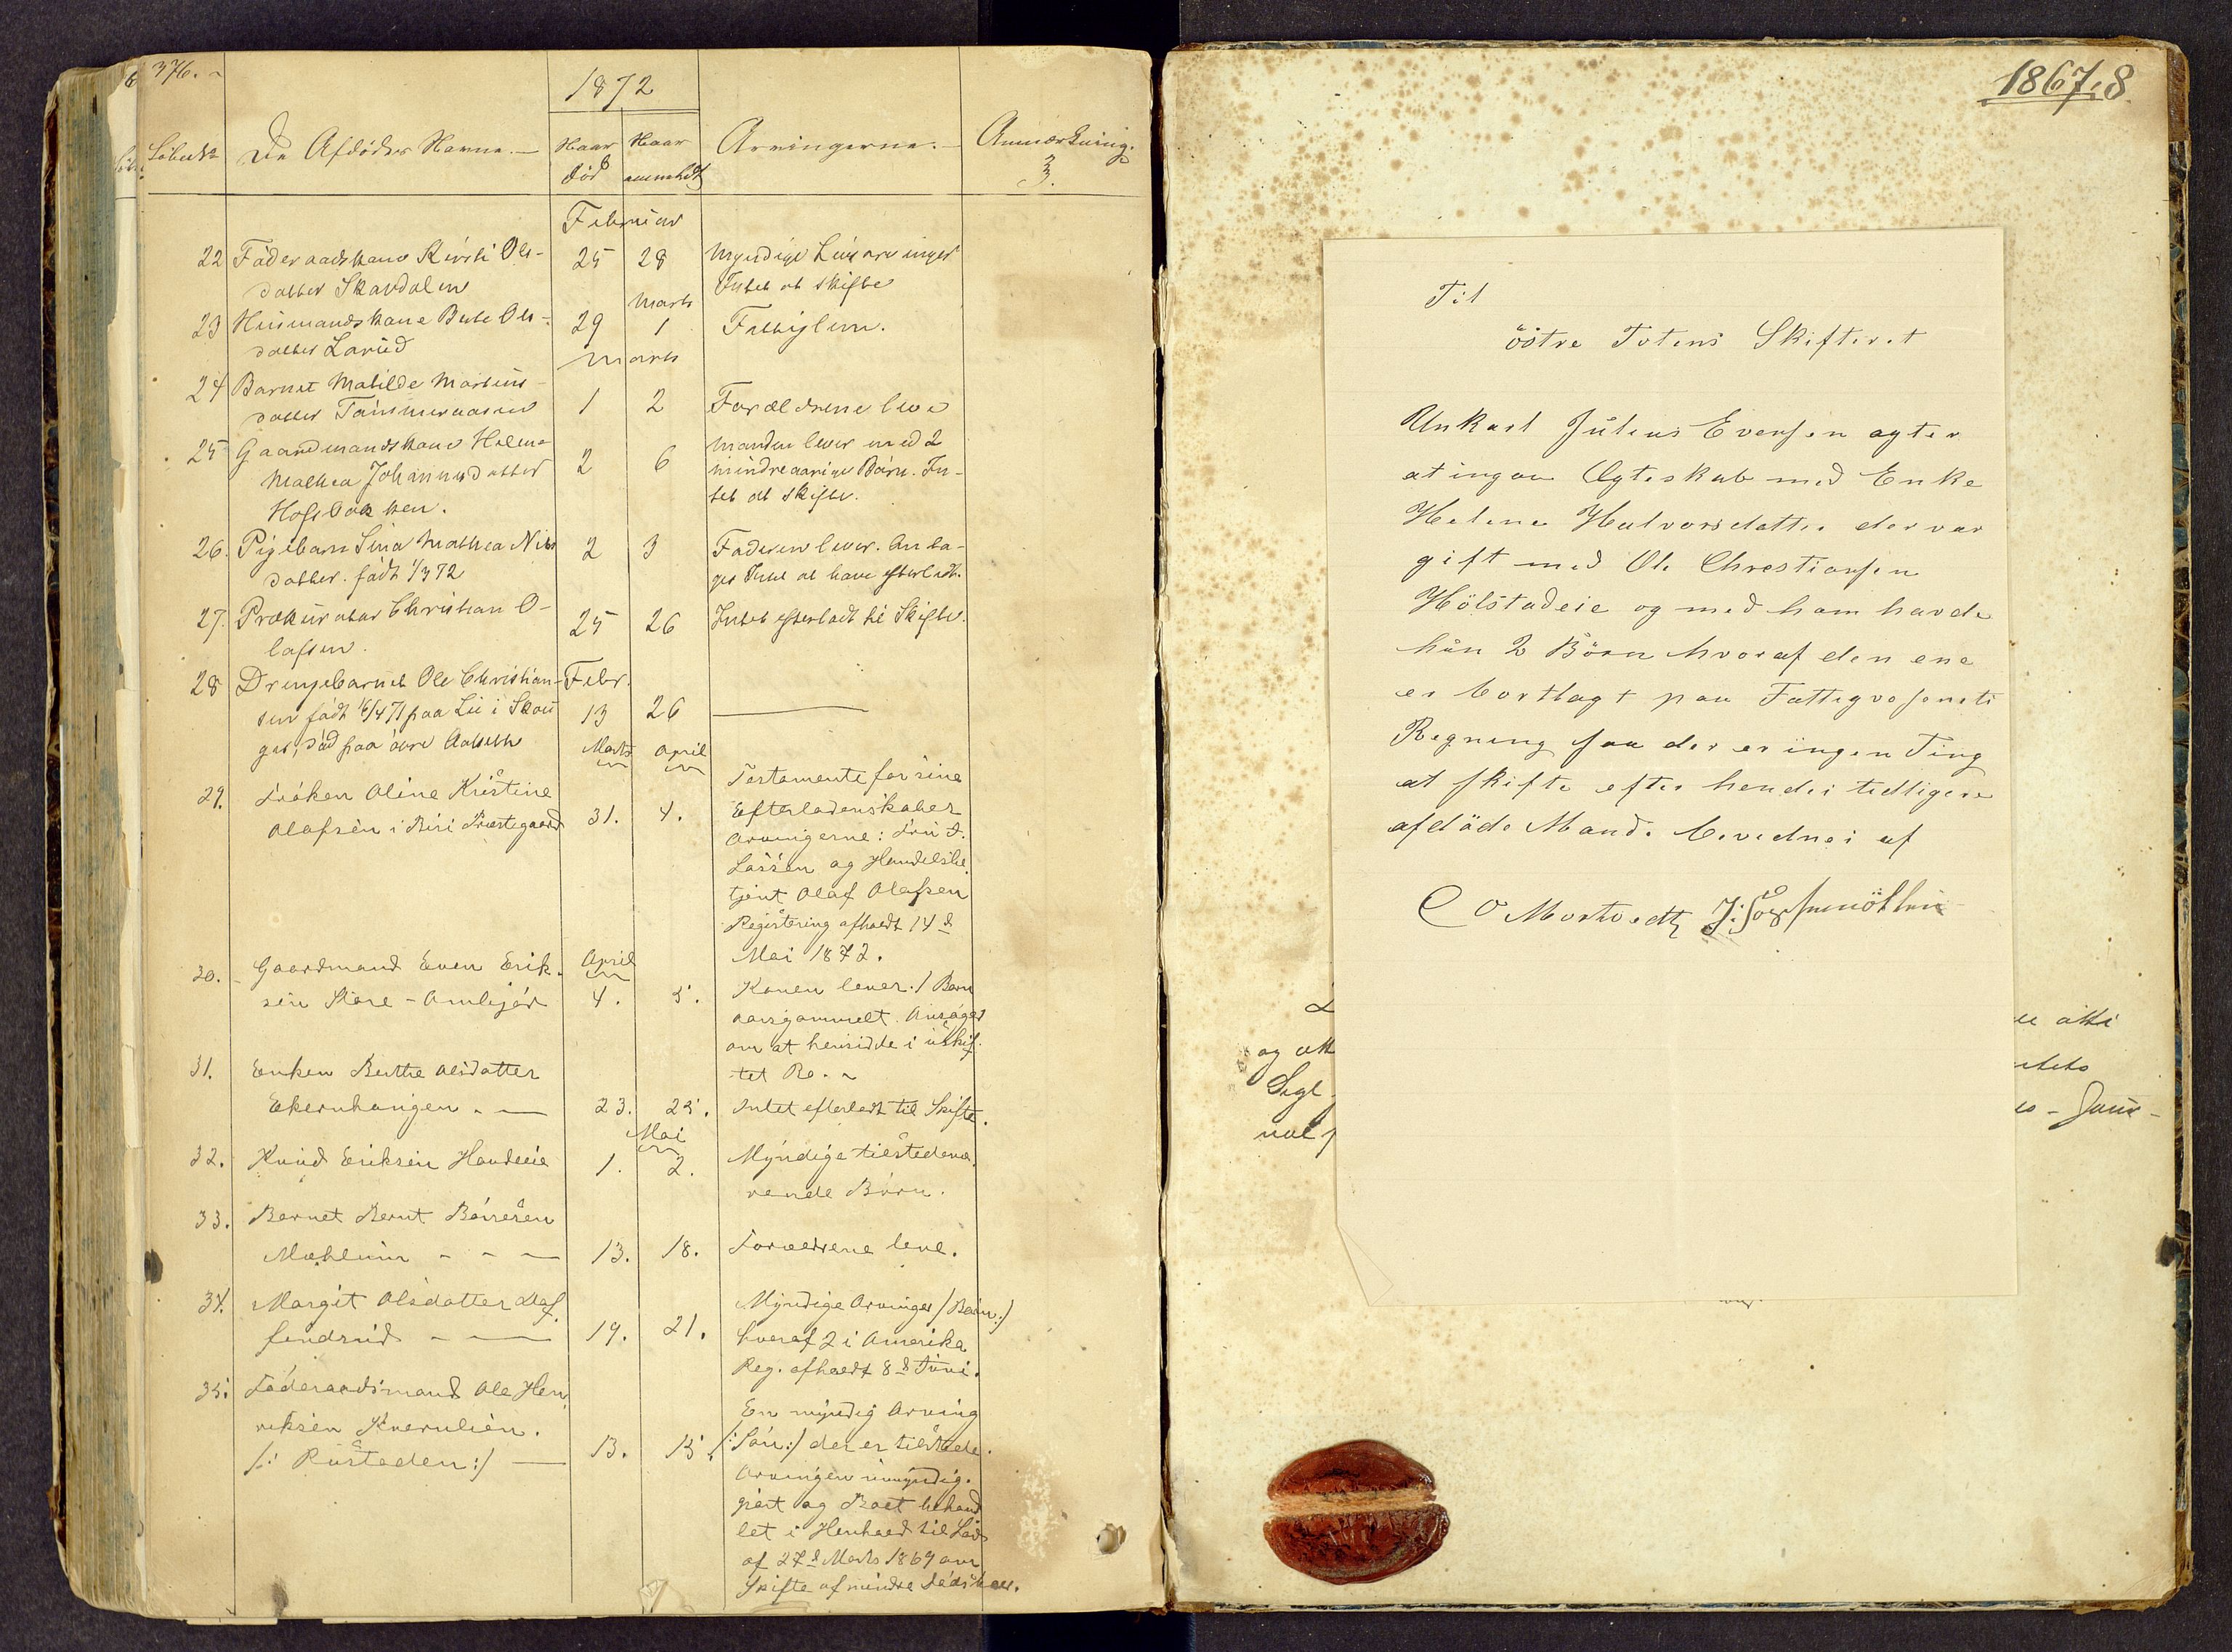 376.
1872
Löbe№
De Afdödes Navne.
Naar
död
Naar
anmeldt
Arvingerne.
Anmærkning.
3.
Februar
22 Föderaadskone Kirsti Ols-
datter Skardalen
25 28
Myndige Livsarvinger
Intet at skifte
23 Huusmandskone Berte Ols-
datter Larud
29
Marts
1
Fattiglem.
Marts
24 Barnet Matilde Martins-
datter Tömmeraasen
1 2
Forældrene leve
25 Gaardmandskone Helene
Mathea Johannesdatter
Hofsbakken.
2 6
Manden lever med 2
mindreaarige Börn. In-
tet at skifte.
26. Pigebarn Sina Mathea Nils
datter. födt 1/3 72
2 3
Faderen lever. Anta-
ges Intet at have efterladt.
27. Prokurator Christian O-
lafsen.
25 26
Intet efterladt til Skifte.
28 Drengebarnet Ole Christian-
sen födt 16/4 71 paa Lie i
död paa övre
Febr.
13 26
29. Fröken Oline Kristine
Olafsen i Biri Præstegaard
Marts
31.
April
4.
Testamente for sine
Efterladenskaber
Arvingerne: Fru J.
Lassen og Handelsbe-
tjent Olaf Olafsen
Registering afholdt 14d
Mai 1872.
30. Gaardmand Even Erik-
sen Store-Amlisjör
April
4. 5.
Konen lever. 1 Barn
aarsgammelt. Ansöger
om at hensidde i uskif-
tet Bo.
31. Enken Berthe Olsdatter
Ekernhaugen.
23. 25.
Intet efterladt til Skifte.
Mai
32. Knud Eriksen Haudeeie
1. 2.
Myndige tilstedevæ-
rende Börn.
33. Barnet Bernt Börresen
Mæhlum
13. 18.
Forældrene leve.
34. Margit Olsdatter
19. 21.
Myndige Arvinger /Börn:/
hvoraf 2 i Amerika
Reg. afholdt 8d Juni.
35. Föderaadsmand Ole Hen-
riksen Kvernlien.
/: Rustaden:/
13. 15.
En myndig Arving
/: Sön:/ der er tilstede.
Arvingen umyndig-
gjort og Boet behand
let i Henhold til Lov
af 27d Marts 1869 om
Skifte af mindre Dödsboer.
1867,8
Til
östre Totens Skifteret
Unkarl Julius Evensen agter
at ingaa Ægteskab med Enke
Helene Halvorsdatter der var
gift med Ole Chrestiansen
Hölstadeie og med ham havde
hun 2 Börn hvoraf den ene
er bortlagt paa Fattigvesenets
Regning saa der er ingen Ting
at skifte efter hendes tidligere
afdöde Mand. bevidnes af
C O Mostvedt
og att
Segl
nal